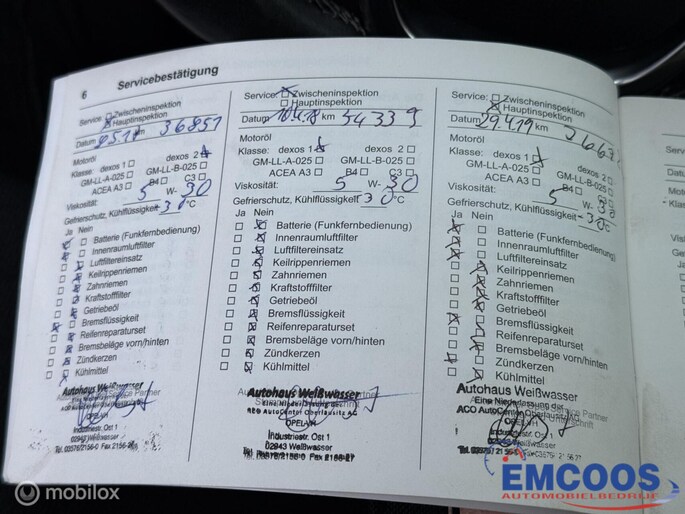 6 Servicebestätigung
Service: Zwischeninspektion
Hauptinspektion
Datum km 36851
Motoröl
Klasse: dexos 1 dexos 2
GM-LL-A-025 GM-LL-B-025
ACEA A3 B4 C3
Viskosität: 5 W- 30
Gefrierschutz, Kühlflüssigkeit -30 °C
Ja Nein
Batterie (Funkfernbedienung)
Innenraumluftfilter
Luftfiltereinsatz
Keilrippenriemen
Zahnriemen
Kraftstofffilter
Getriebeöl
Bremsflüssigkeit
Reifenreparaturset
Bremsbeläge vorn/hinten
Zündkerzen
Kühlmittel
Autohaus Weißwasser
Eine Niederlassung der
OPEL
Industriestr. Ost 1
02943 Weißwasser
Tel. 03576/2156-0 Fax 2156-27
Service: Zwischeninspektion
Hauptinspektion
Datum 10.4.18 km 54339
Motoröl
Klasse: dexos 1 dexos 2
GM-LL-A-025 GM-LL-B-025
ACEA A3 B4 C3
Viskosität: 5 W- 30
Gefrierschutz, Kühlflüssigkeit -30 °C
Ja Nein
Batterie (Funkfernbedienung)
Innenraumluftfilter
Luftfiltereinsatz
Keilrippenriemen
Zahnriemen
Kraftstofffilter
Getriebeöl
Bremsflüssigkeit
Reifenreparaturset
Bremsbeläge vorn/hinten
Zündkerzen
Kühlmittel
Autohaus Weißwasser
Eine Niederlassung der
AutoCenter Oberlausitz AG
Industriestr. Ost 1
02943 Weißwasser
Tel. 03576/2156-0 Fax 2156-27
Service: Zwischeninspektion
Hauptinspektion
Datum 29.4.19 km
Motoröl
Klasse: dexos 1 dexos 2
GM-LL-A-025 GM-LL-B-025
ACEA A3 B4 C3
Viskosität: 5 W- 30
Gefrierschutz, Kühlflüssigkeit -30 °C
Ja Nein
Batterie (Funkfernbedienung)
Innenraumluftfilter
Luftfiltereinsatz
Keilrippenriemen
Zahnriemen
Kraftstofffilter
Getriebeöl
Bremsflüssigkeit
Reifenreparaturset
Bremsbeläge vorn/hinten
Zündkerzen
Kühlmittel
Autohaus Weißwasser
Eine Niederlassung der Partner
ACO AutoCenter Oberlausitz
Industriestr. Ost 1
02943 Weißwasser
EMCOOS
AUTOMOBIELBEDRIJF
mobilox